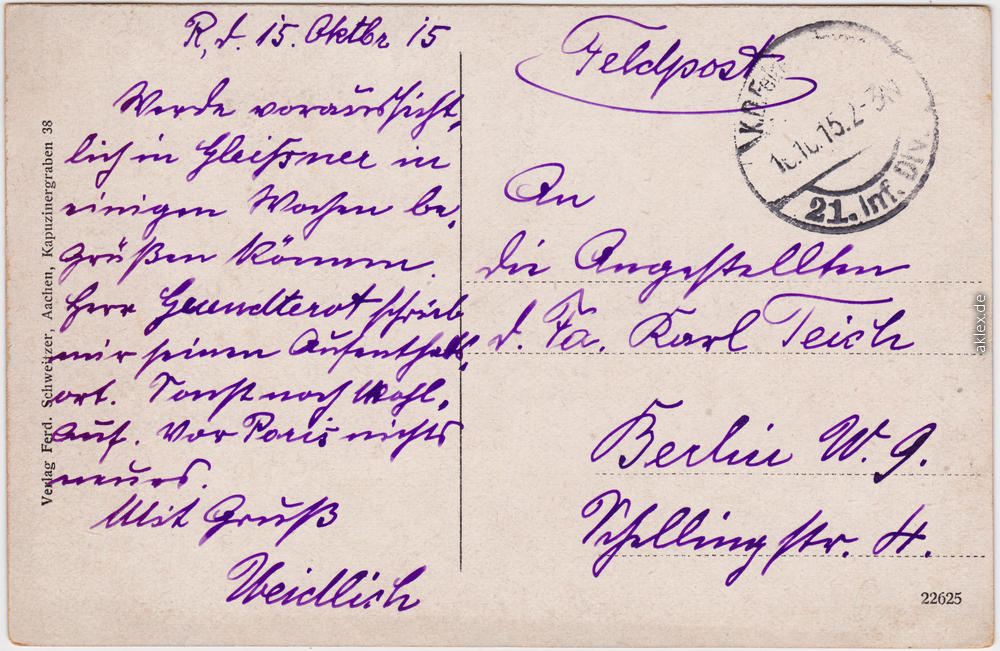 R, d. 15. Oktbr 15
Werde voraussicht-
lich in Gleißner in
einigen Wochen be-
grüßen können.
Herr schrieb
mir seinen Aufenthalts-
ort. Sonst noch Wohl-
auf. Vor Paris nichts
neues.
Mit Gruß
Weidlich
Verlag Ferd. Schweitzer, Aachen, Kapuzinergraben 38
Feldpost
K.D. Feld
16.10.15.2-3N
21. Inf. Div.
An
die Angestellten
d. Fa. Karl Teich
Berlin W. 9.
Schellingstr. 4.
22625
aklex.de